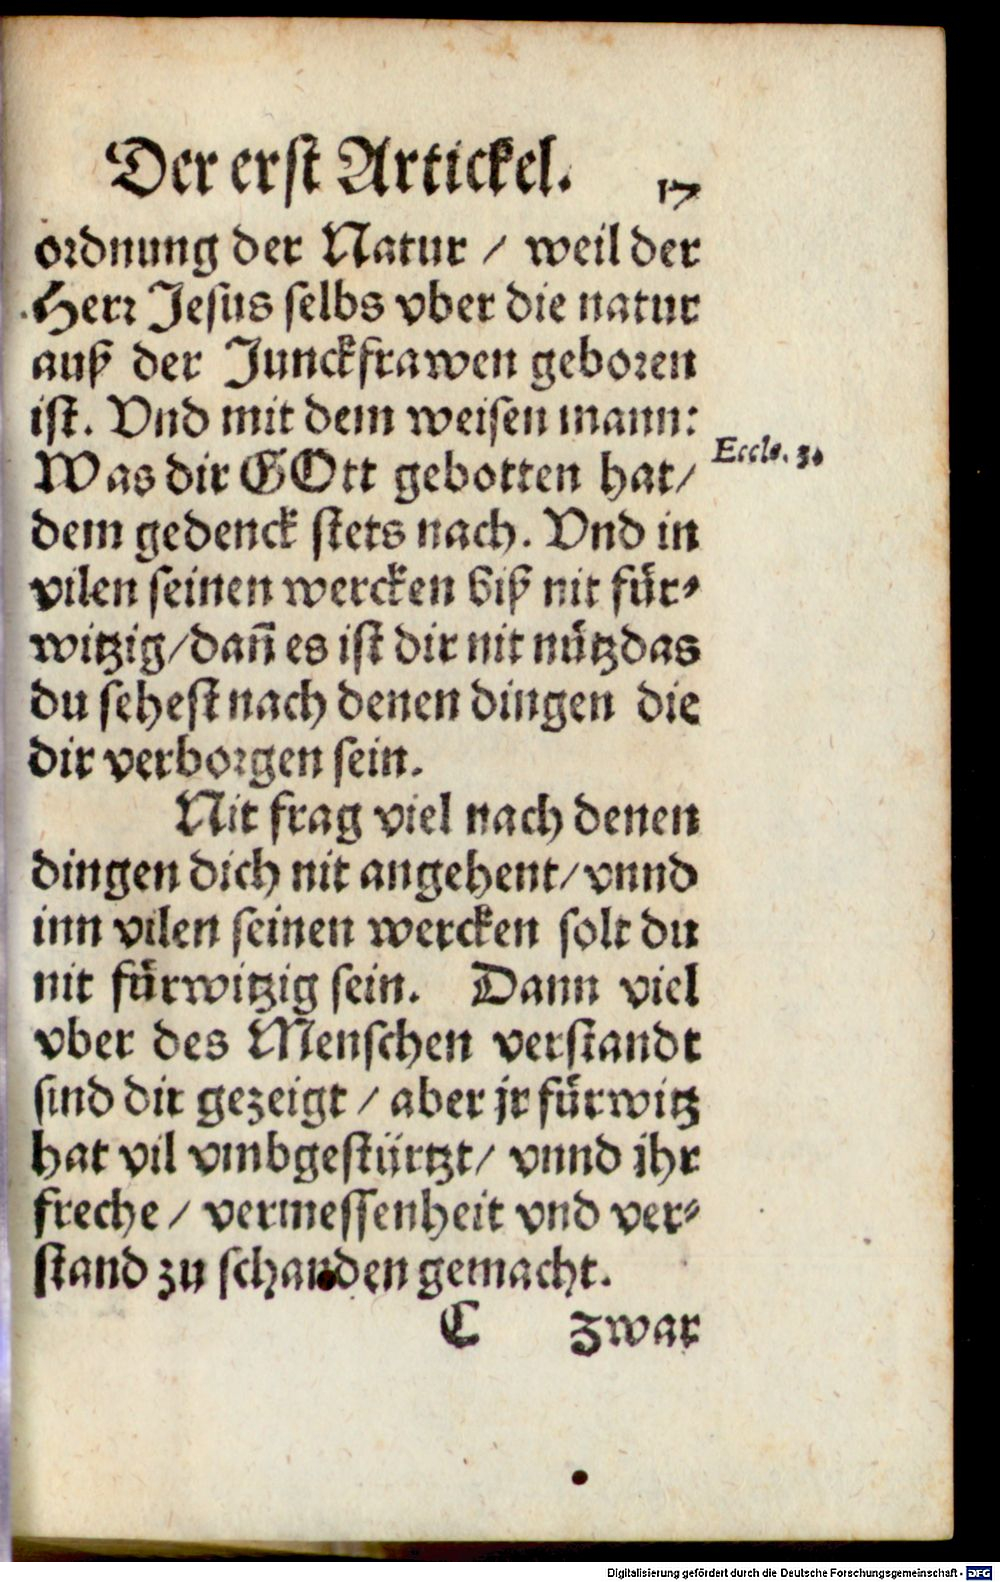 Der erst Artickel. 17
ordnung der Natur / weil der
Herr Jesus selbs vber die natur
auß der Junckfrawen geboren
ist. Vnd mit dem weisen mann:
Was dir GOtt gebotten hat/
Eccle. 3.
dem gedenck stets nach. Vnd in
vilen seinen wercken biß nit für-
witzig/dañ es ist dir nit nütz das
du sehest nach denen dingen die
dir verborgen sein.
Nit frag viel nach denen
dingen dich nit angehent/ vnnd
inn vilen seinen wercken solt du
nit fürwitzig sein. Dann viel
vber des Menschen verstandt
sind dir gezeigt / aber jr fürwitz
hat vil vmbgestürtzt/ vnnd ihr
freche / vermessenheit vnd ver-
stand zu schanden gemacht.
C zwar
Digitalisierung gefördert durch die Deutsche Forschungsgemeinschaft - DFG